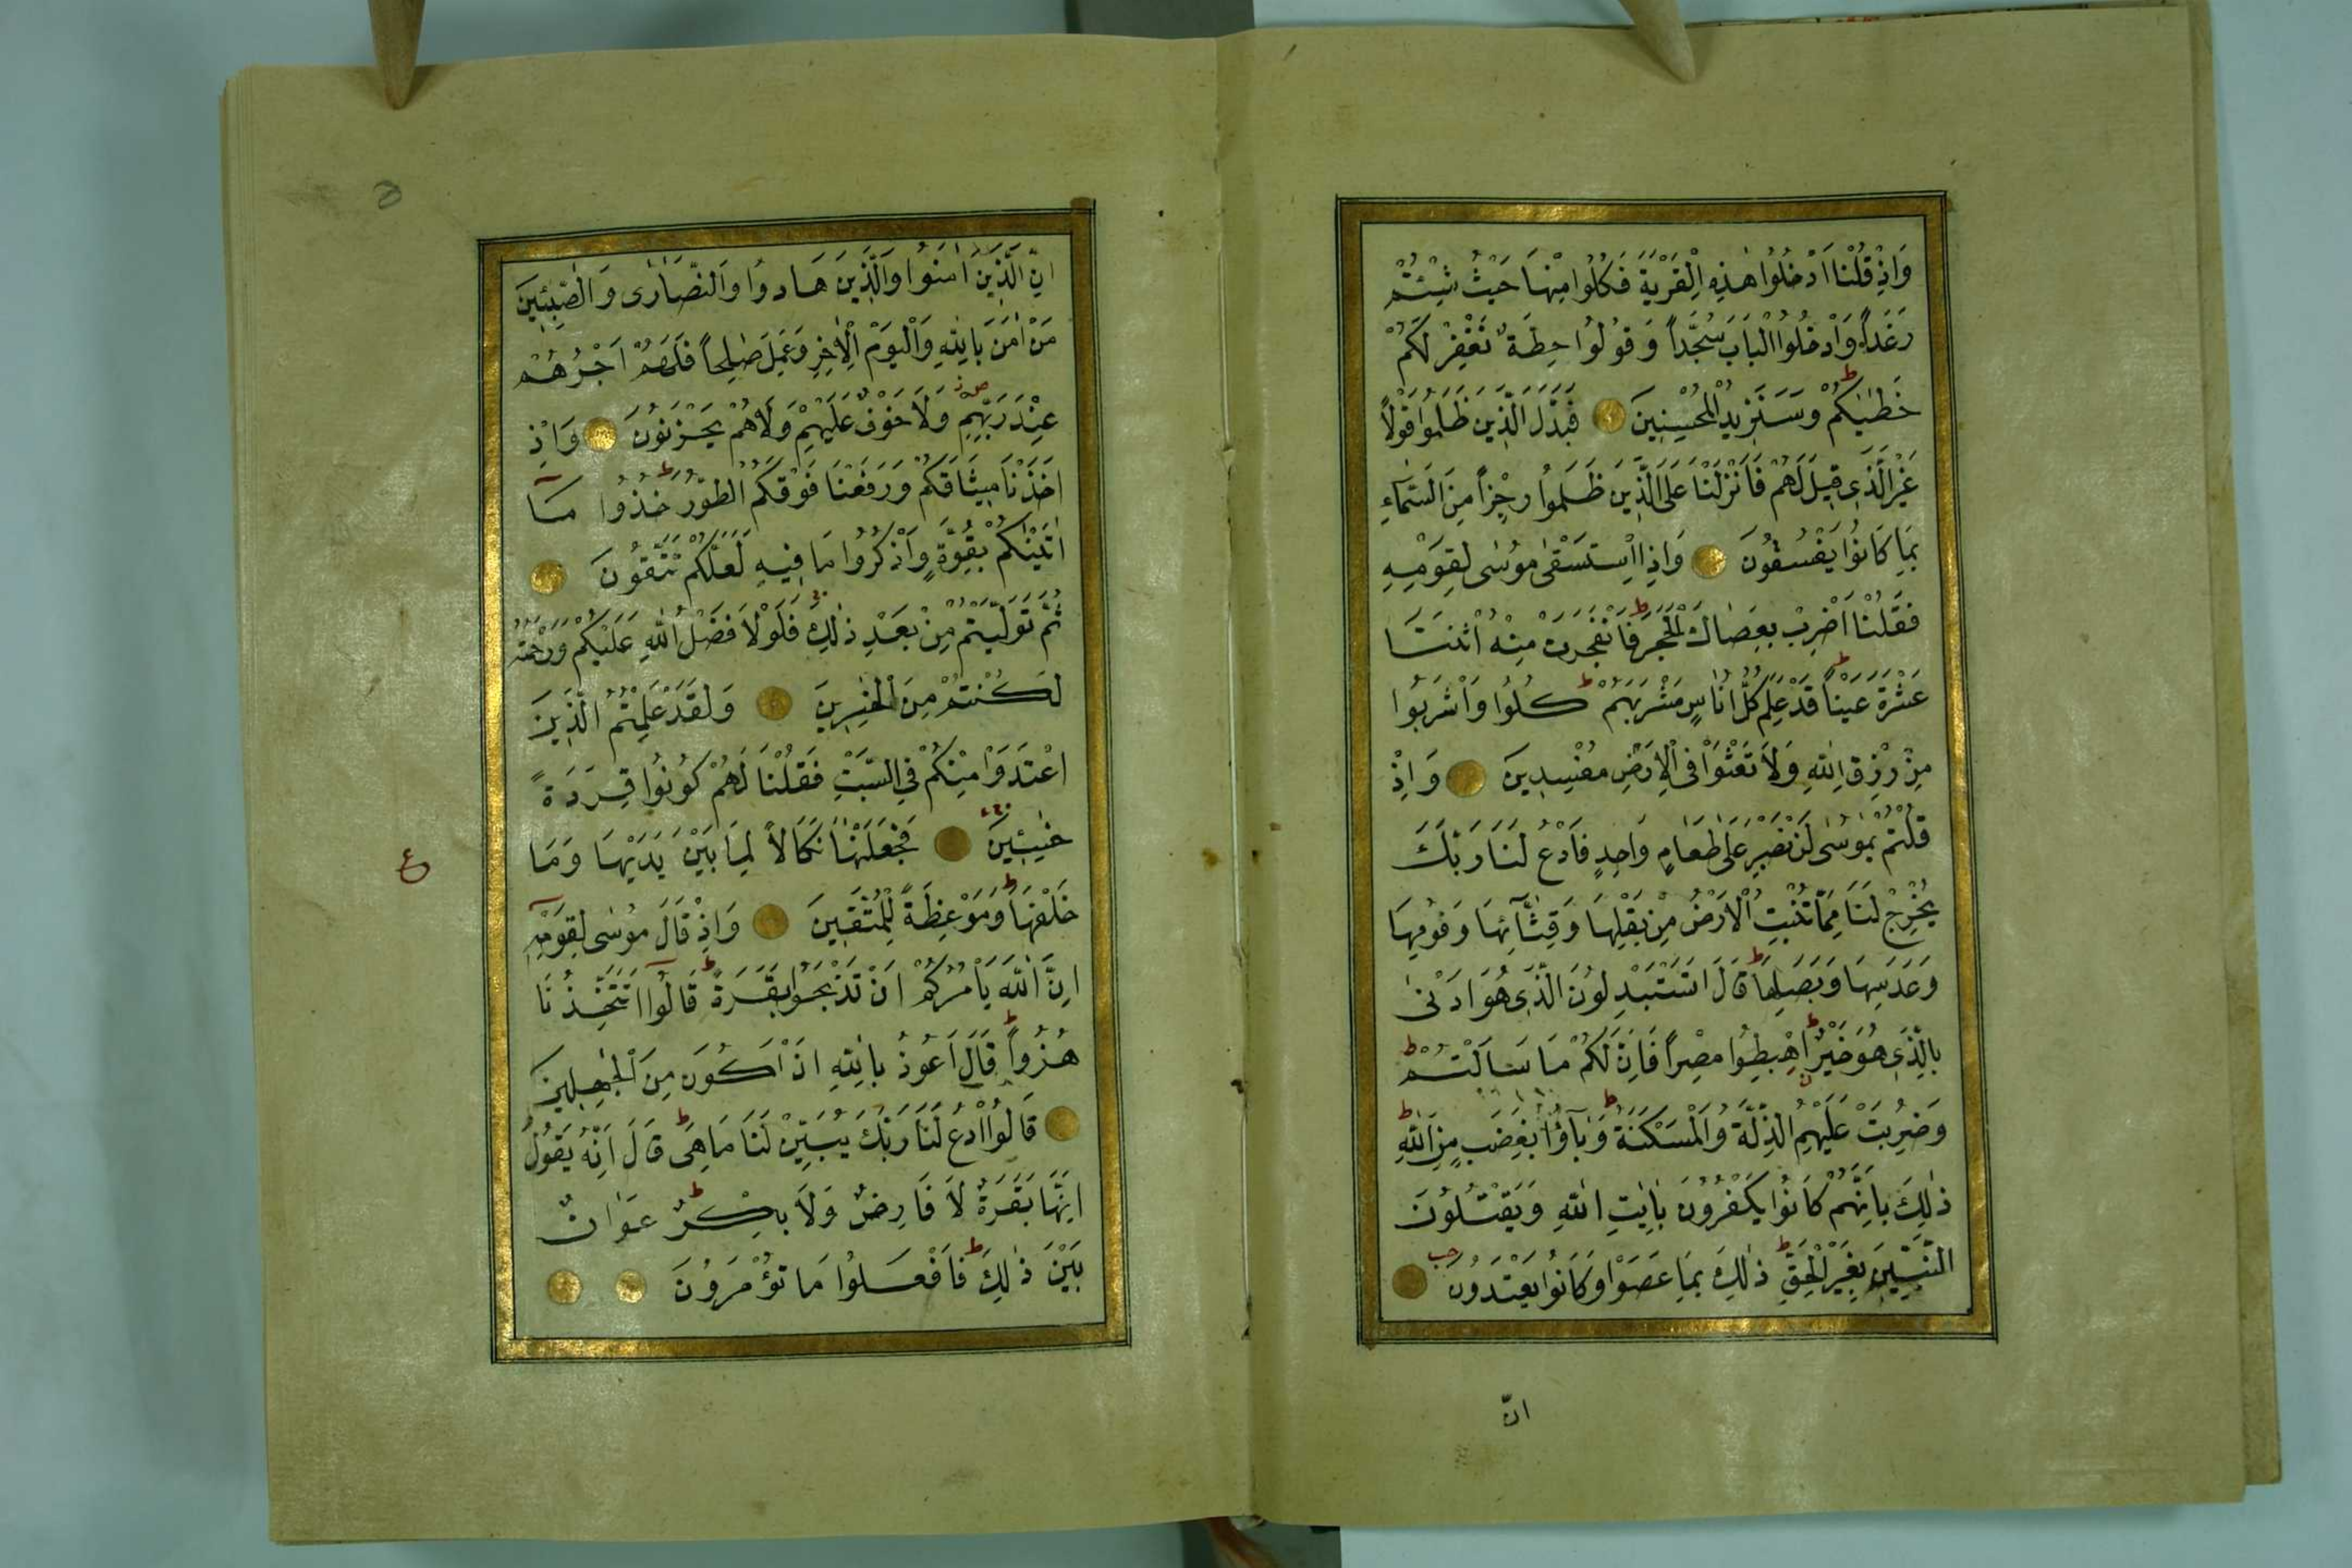 وَاِذْ قُلْنَا ادْخُلُوا هٰذِهِ الْقَرْيَةَ فَكُلُوا مِنْهَا حَيْثُ شِئْتُمْ
رَغَدًا وَادْخُلُوا الْبَابَ سُجَّدًا وَقُولُوا حِطَّةٌ نَغْفِرْ لَكُمْ
خَطٰيٰكُمْ ط وَسَنَزِيدُ الْمُحْسِنِينَ فَبَدَّلَ الَّذِينَ ظَلَمُوا قَوْلًا
غَيْرَ الَّذِى قِيلَ لَهُمْ فَاَنْزَلْنَا عَلَى الَّذِينَ ظَلَمُوا رِجْزًا مِنَ السَّمَاءِ
بِمَا كَانُوا يَفْسُقُونَ وَاِذِ اسْتَسْقٰى مُوسٰى لِقَوْمِهِ
فَقُلْنَا اضْرِبْ بِعَصَاكَ الْحَجَرَ ط فَانْفَجَرَتْ مِنْهُ اثْنَتَا
عَشْرَةَ عَيْنًا ط قَدْ عَلِمَ كُلُّ اُنَاسٍ مَشْرَبَهُمْ ط كُلُوا وَاشْرَبُوا
مِنْ رِزْقِ اللّٰهِ وَلَا تَعْثَوْا فِى الْاَرْضِ مُفْسِدِينَ وَاِذْ
قُلْتُمْ يٰمُوسٰى لَنْ نَصْبِرَ عَلٰى طَعَامٍ وَاحِدٍ فَادْعُ لَنَا رَبَّكَ
يُخْرِجْ لَنَا مِمَّا تُنْبِتُ الْاَرْضُ مِنْ بَقْلِهَا وَقِثَّآئِهَا وَفُومِهَا
وَعَدَسِهَا وَبَصَلِهَا ط قَالَ اَتَسْتَبْدِلُونَ الَّذِى هُوَ اَدْنٰى
بِالَّذِى هُوَ خَيْرٌ ط اِهْبِطُوا مِصْرًا فَاِنَّ لَكُمْ مَا سَاَلْتُمْ ط
وَضُرِبَتْ عَلَيْهِمُ الذِّلَّةُ وَالْمَسْكَنَةُ ط وَبَآؤُا بِغَضَبٍ مِنَ اللّٰهِ ط
ذٰلِكَ بِاَنَّهُمْ كَانُوا يَكْفُرُونَ بِاٰيٰتِ اللّٰهِ وَيَقْتُلُونَ
النَّبِيِّينَ بِغَيْرِ الْحَقِّ ط ذٰلِكَ بِمَا عَصَوْا وَكَانُوا يَعْتَدُونَ
انّ
اِنَّ الَّذِينَ اٰمَنُوا وَالَّذِينَ هَادُوا وَالنَّصَارٰى وَالصّٰبِئِينَ
مَنْ اٰمَنَ بِاللّٰهِ وَالْيَوْمِ الْاٰخِرِ وَعَمِلَ صٰلِحًا فَلَهُمْ اَجْرُهُمْ
عِنْدَ رَبِّهِمْ وَلَا خَوْفٌ عَلَيْهِمْ وَلَا هُمْ يَحْزَنُونَ وَاِذْ
اَخَذْنَا مِيثَاقَكُمْ وَرَفَعْنَا فَوْقَكُمُ الطُّورَ ط خُذُوا مَآ
اٰتَيْنٰكُمْ بِقُوَّةٍ وَاذْكُرُوا مَا فِيهِ لَعَلَّكُمْ تَتَّقُونَ
ثُمَّ تَوَلَّيْتُمْ مِنْ بَعْدِ ذٰلِكَ فَلَوْلَا فَضْلُ اللّٰهِ عَلَيْكُمْ وَرَحْمَتُهُ
لَكُنْتُمْ مِنَ الْخٰسِرِينَ وَلَقَدْ عَلِمْتُمُ الَّذِينَ
اعْتَدَوْا مِنْكُمْ فِى السَّبْتِ فَقُلْنَا لَهُمْ كُونُوا قِرَدَةً
خٰسِئِينَ فَجَعَلْنٰهَا نَكَالًا لِمَا بَيْنَ يَدَيْهَا وَمَا
ع
خَلْفَهَا وَمَوْعِظَةً لِلْمُتَّقِينَ وَاِذْ قَالَ مُوسٰى لِقَوْمِهٓ
اِنَّ اللّٰهَ يَاْمُرُكُمْ اَنْ تَذْبَحُوا بَقَرَةً ط قَالُوٓا اَتَتَّخِذُنَا
هُزُوًا ط قَالَ اَعُوذُ بِاللّٰهِ اَنْ اَكُونَ مِنَ الْجٰهِلِينَ
قَالُوا ادْعُ لَنَا رَبَّكَ يُبَيِّنْ لَنَا مَا هِىَ ط قَالَ اِنَّهُ يَقُولُ
اِنَّهَا بَقَرَةٌ لَا فَارِضٌ وَلَا بِكْرٌ ط عَوَانٌ
بَيْنَ ذٰلِكَ ط فَافْعَلُوا مَا تُؤْمَرُونَ